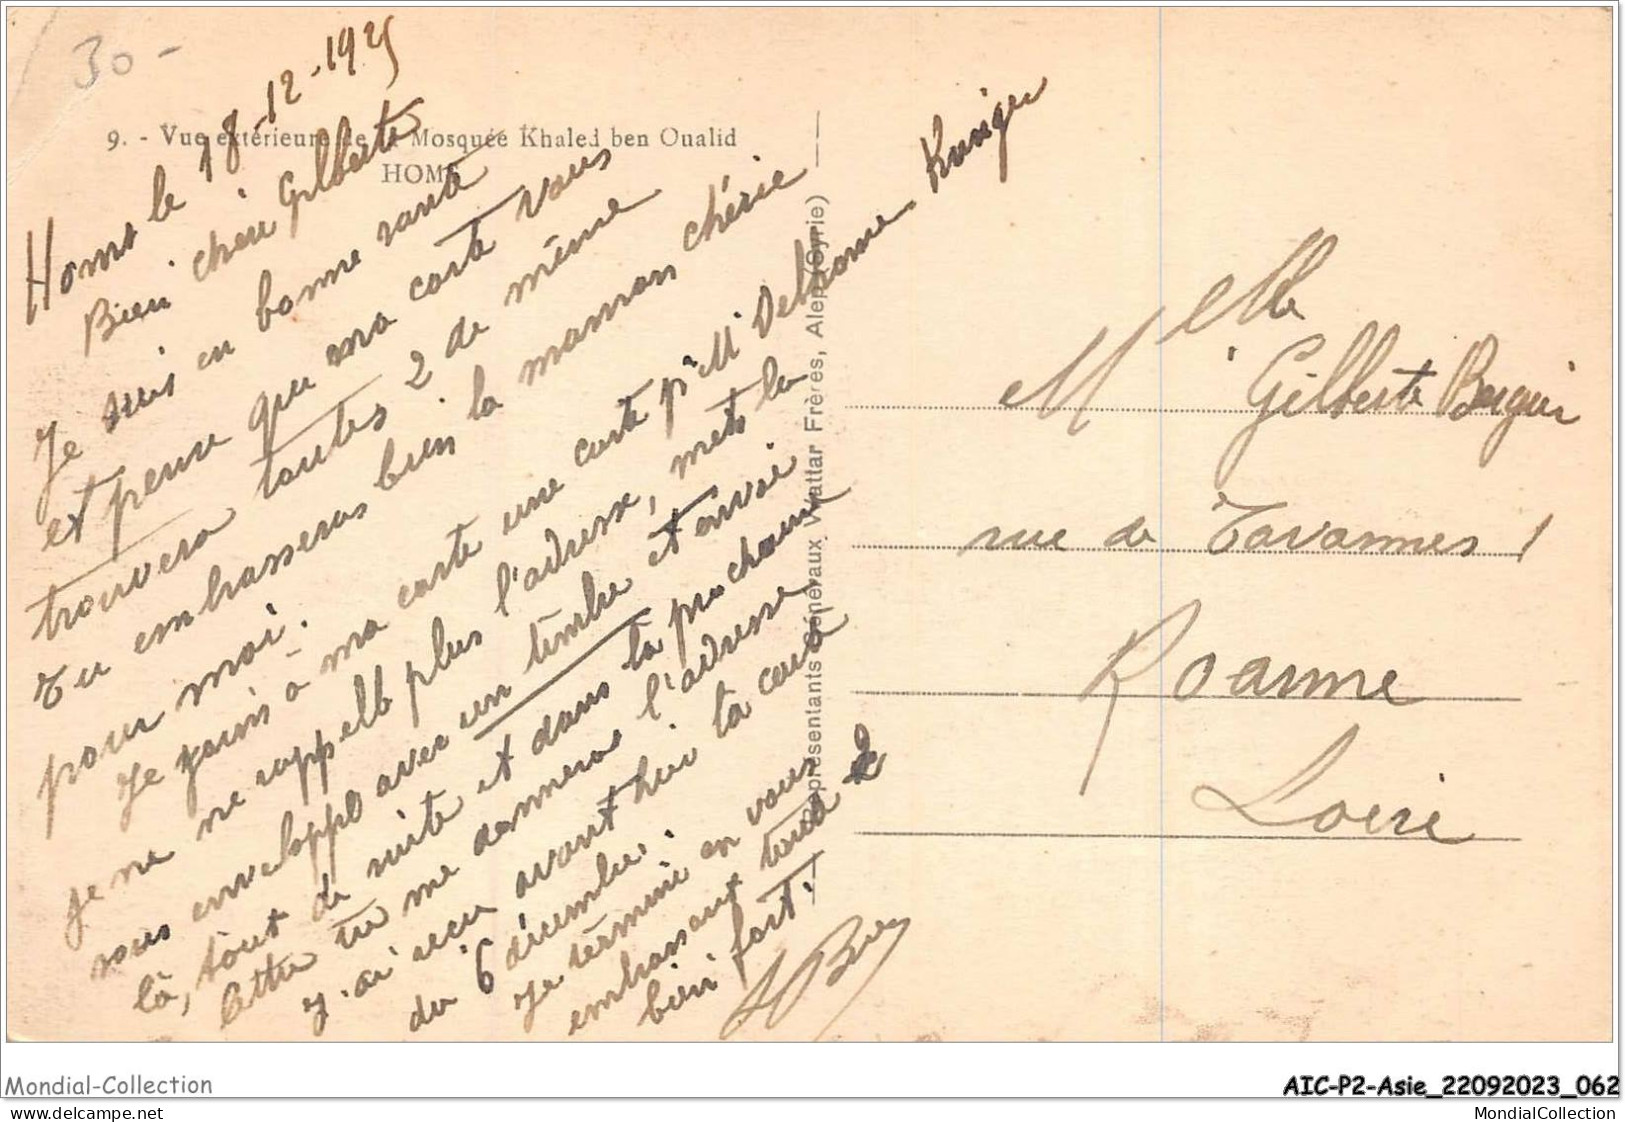 30-
9. - Vue extérieure de la Mosquée Khaled ben Oualid
HOMS
Homs le 18-12-1925
Bien chère Gilberte
Je suis en bonne santé
et pense que ma carte vous
trouvera toutes 2 de même
Tu embrasseras bien la maman chérie
pour moi.
Je joins à ma carte une carte pr Mr Delorme
je ne rappelle plus l'adresse, mets la
sous enveloppe avec un timbre et envoi
là, tout de suite et dans ta prochaine
lettre tu me donneras l'adresse
J'ai reçu avant hier ta carte
du 6 décembre.
Je termine en vous
embrassant toutes 2
bien fort.
Représentants Généraux Wattar Frères, Alep (Syrie)
Melle
Gilberte
rue de Tavannes 1
Roanne
Loire
Mondial-Collection
AIC-P2-Asie_22092023_062
www.delcampe.net
MondialCollection